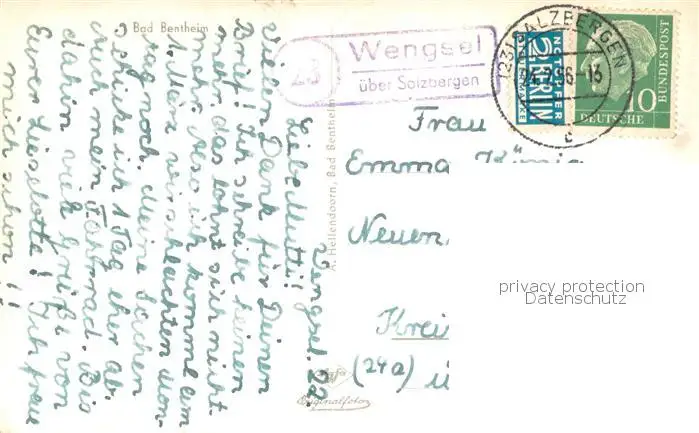 Bad Bentheim
23
Wengsel
über Salzbergen
NOTOPFER
2 BERLIN
STEUERMARKE
(23) SALZBERGEN
DEUTSCHE
BUNDESPOST
10
Frau
Emma König
Neuen
Krei
(24a)
privacy protection
Datenschutz
A. Hellendoorn, Bad Bentheim
Originalfoto
Wengsel. 22.
Liebe Mutti!
Vielen Dank für Deinen
Brief! Ich schreibe keinen
mehr, das lohnt sich nicht
mehr. Also ich komme am
1. März, wir schlachten Mon-
tag noch. Meine Sachen
schicke ich 1 Tag eher ab.
Auch mein Fahrrad. Bis
dahin viele Grüße von
Eurer Lieselotte! Ich freue
mich schon!!